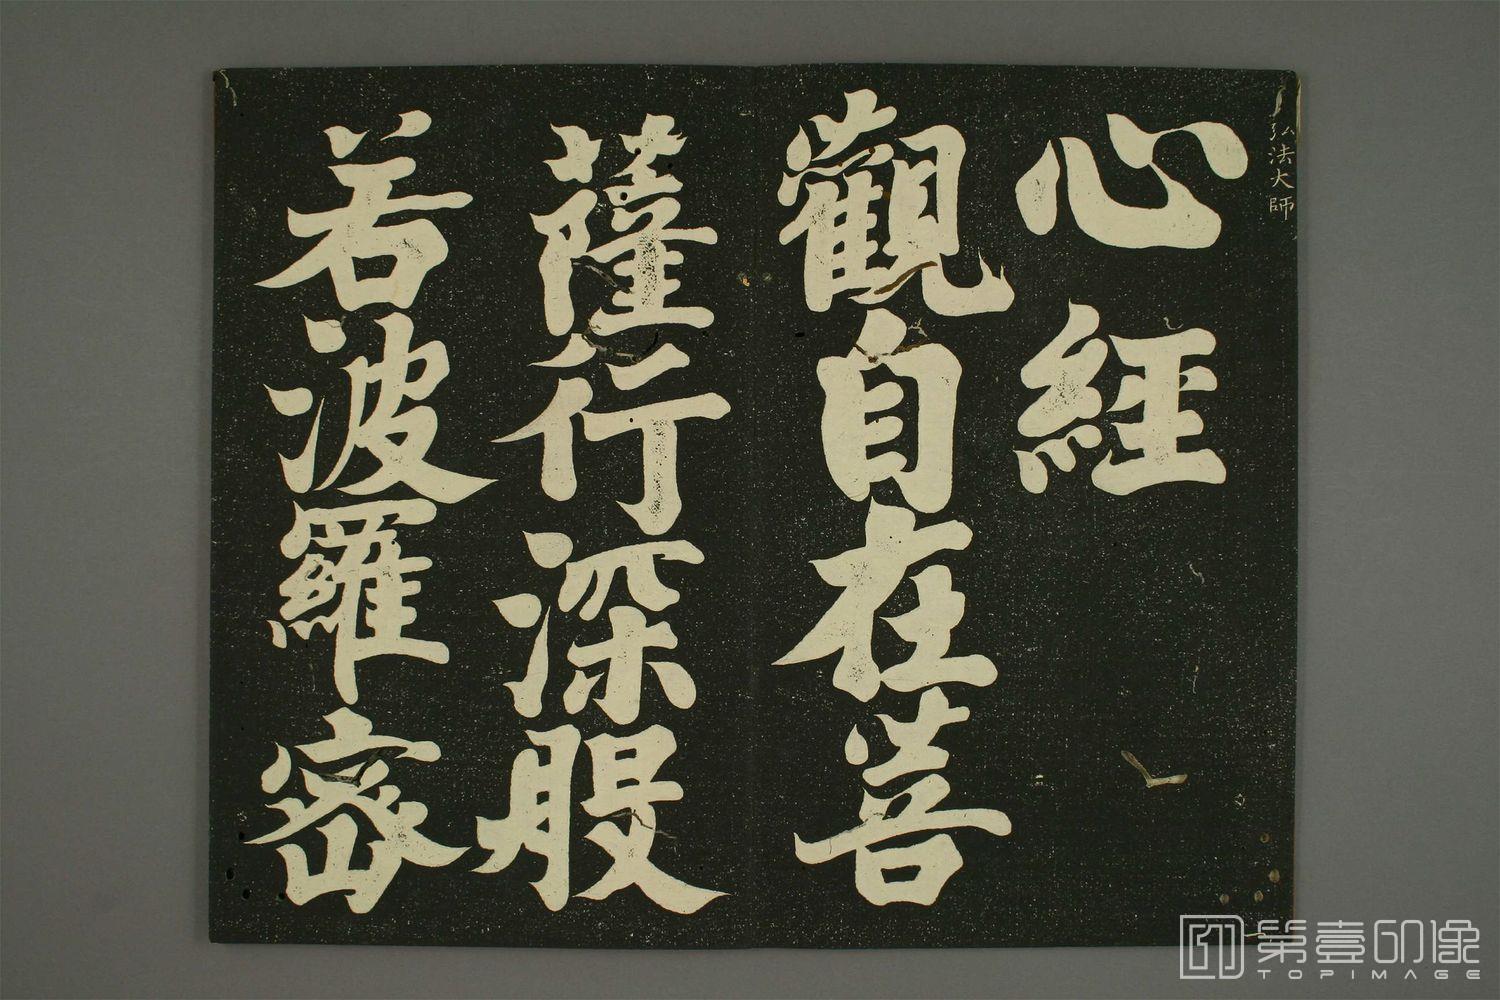 弘法大師
心經
觀自在菩
薩行深股
若波羅密
第壹印像
TOPIMAGE